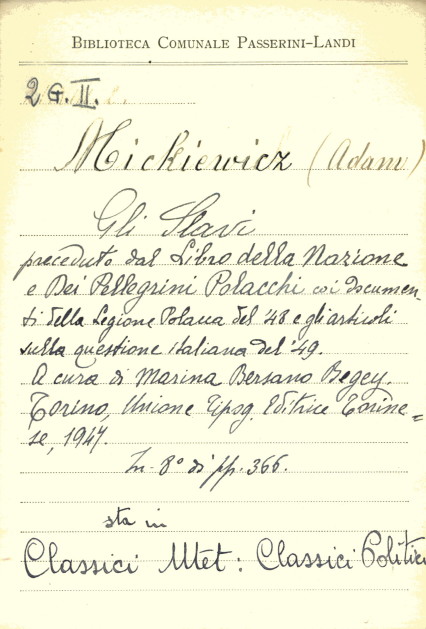 BIBLIOTECA COMUNALE PASSERINI-LANDI
2 G. II.
Mickiewicz (Adam)
Gli Slavi
preceduto dal Libro della Nazione
e Dei Pellegrini Polacchi coi documen-
ti della Legione Polacca del '48 e gli articoli
sulla questione italiana del '49.
A cura di Marina Bersano Begey.
Torino, Unione Tipog. Editrice Torine=
se, 1947.
In-8° di pp. 366.
sta in
Classici Utet: Classici Politici